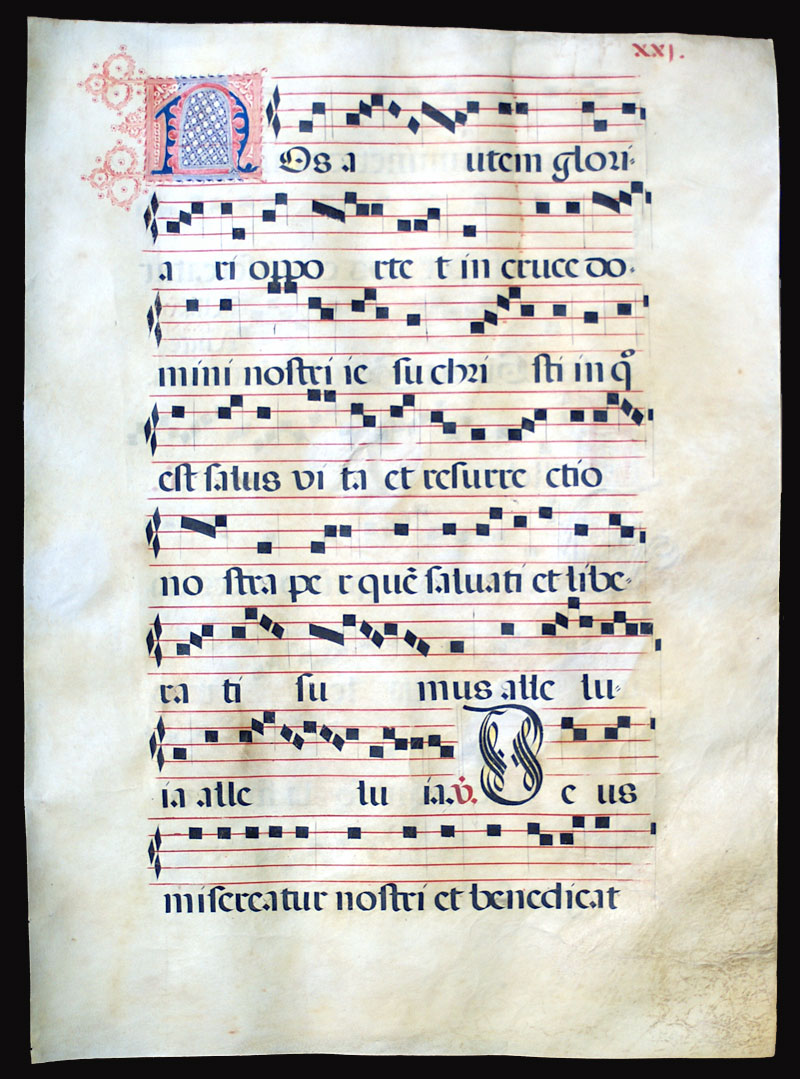 xxj.
NOs a utem glori-
a ri oppo rte t in cruce do-
mini nostri ie su chri sti in qͦ
est salus vi ta et resurre ctio
no stra pe r quē saluati et libe-
ra ti su mus alle lu-
ia alle lu ia. v̇. De us
misereatur nostri et benedicat